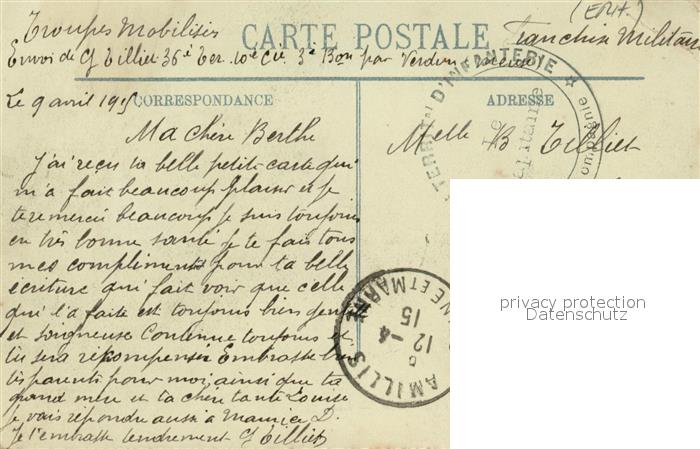 Troupes Mobilisées
CARTE POSTALE
(EPH.)
Franchise Militaire
Envoi de G Tilliet 36e Ter. 10e Cie 3e Bon par Verdun Meuse
Le 9 avril 1915
CORRESPONDANCE
Ma chère Berthe
J'ai reçu ta belle petite carte qui
m'a fait beaucoup plaisir et je
te remercie beaucoup je suis toujours
en très bonne santé je te fais tous
mes compliments pour ta belle
écriture qui fait voir que celle
qui l'a faite est toujours bien
et soigneuse Continue toujours et
tu sera récompensée Embrasse bien
tes parents pour moi, ainsi que ta
grand mère et ta chère tante Louise
Je vais répondre aussi à Maurice D.
Je t'embrasse tendrement G Tilliet
ADRESSE
Melle B Tilliet
TERRal D'INFANTERIE
AMILLIS
12 -4
15
NE ET MARNE
privacy protection
Datenschutz